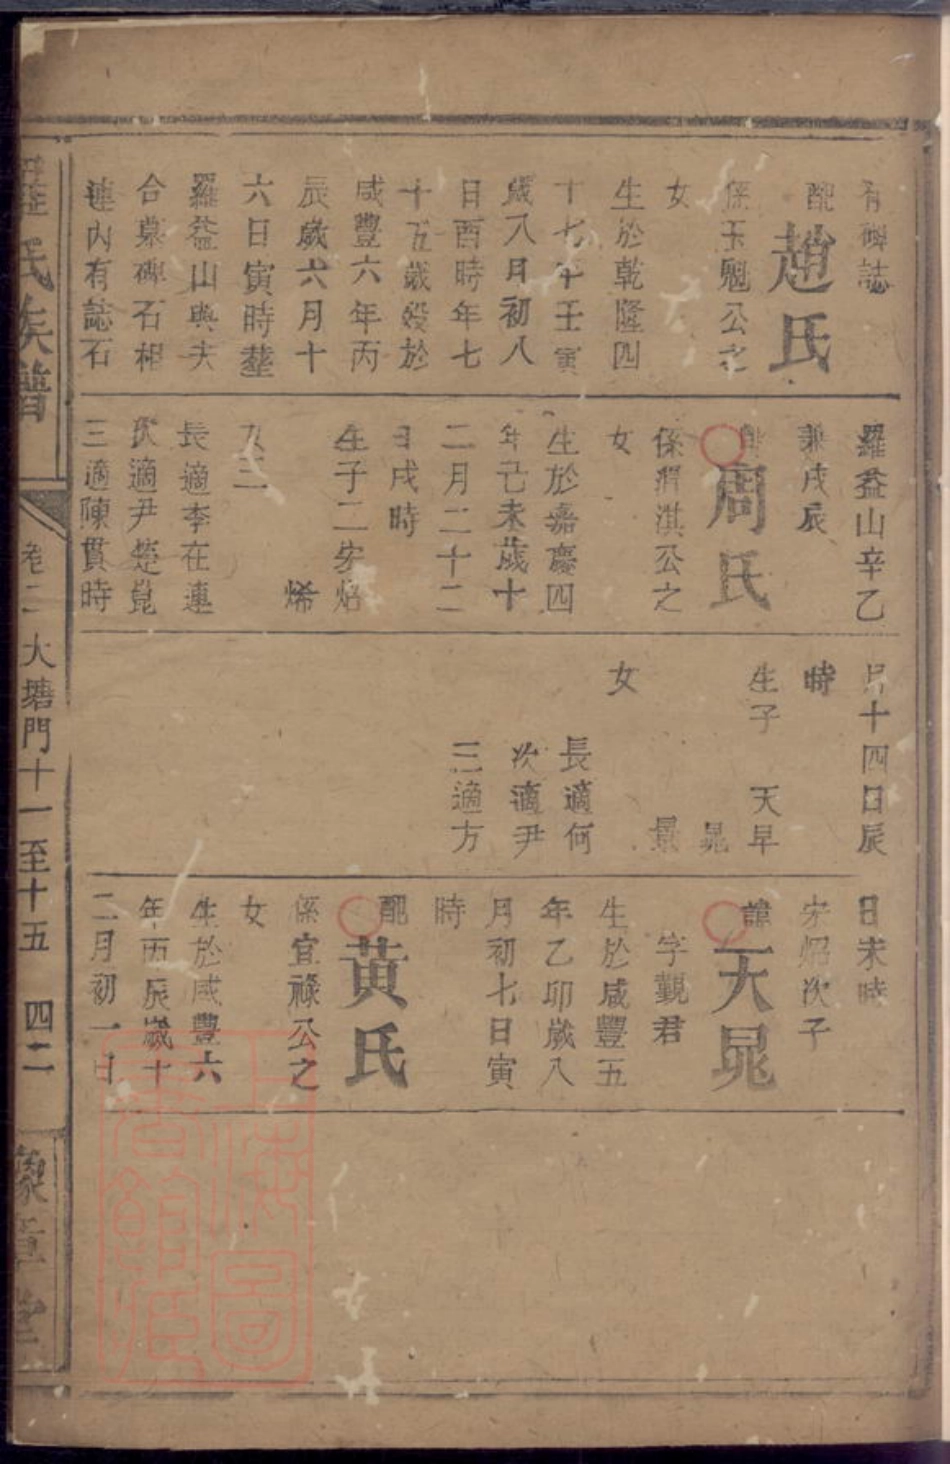 有碑誌
配趙氏
係玉魁公之
女
生於乾隆四
十七年壬寅
歲八月初八
日酉時年七
十五歲殁於
咸豐六年丙
辰歲六月十
六日寅時塟
羅益山與夫
合墓碑石相
連內有誌石
羅益山辛乙
兼戌辰
周氏
係渭淇公之
女
生於嘉慶四
年己未歲十
二月二十二
日戌時
生子二宏炤
烯
女三
長適李在連
次適尹楚崑
三適陳貫時
月十四日辰
時
生子 天早
晁
景
女
長適何
次適尹
三適方
日未時
宏炤次子
諱天晁
字觀君
生於咸豐五
年乙卯歲八
月初七日寅
時
配黃氏
係宜祿公之
女
生於咸豐六
年丙辰歲十
二月初一日
羅氏族譜
卷二 大塘門十一至十五 四二
豫章堂
上海圖
書館藏